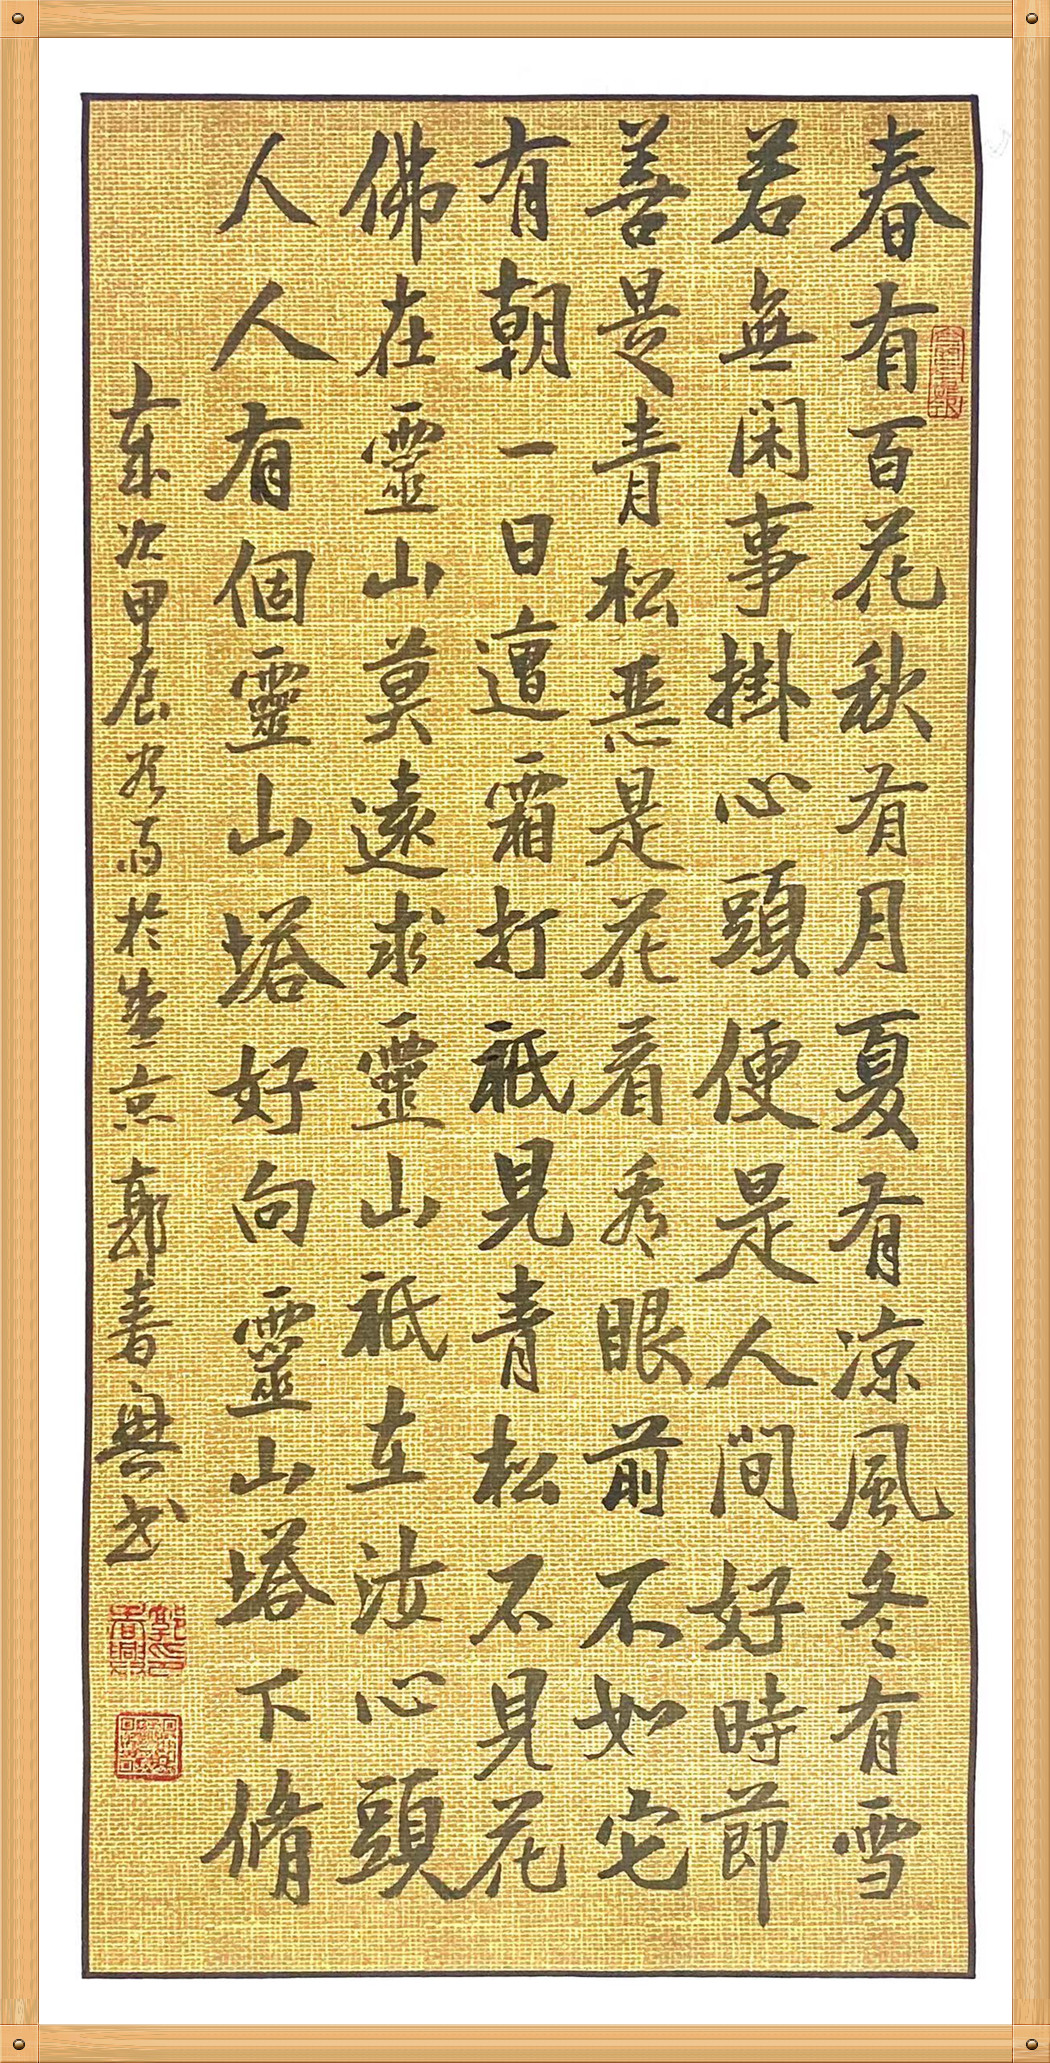 春有百花秋有月夏有凉風冬有雪
若無闲事掛心頭便是人間好時節
善是青松恶是花看秀眼前不如它
有朝一日遭霜打祇見青松不見花
佛在靈山莫遠求靈山祇在汝心頭
人人有個靈山塔好向靈山塔下脩
歲次甲辰谷雨於燕京郭春興书